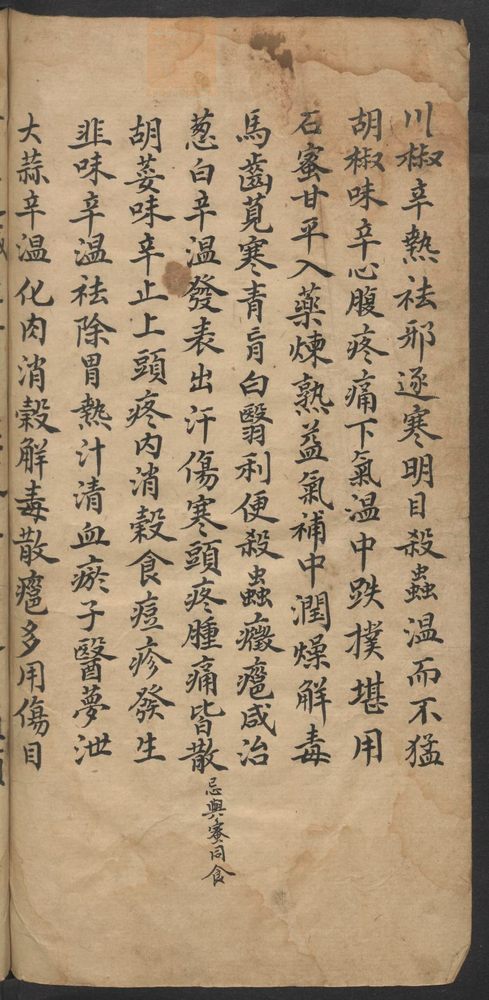 川椒辛熱祛邪逐寒明目殺蟲温而不猛
胡椒味辛心腹疼痛下氣温中跌撲堪用
石蜜甘平入藥煉熟益氣補中潤燥解毒
馬齒莧寒青盲白翳利便殺蟲癥癰咸治
葱白辛温發表出汗傷寒頭疼腫痛皆散 忌與蜜同食
胡荽味辛止上頭疼内消穀食痘疹發生
韭味辛温祛除胃熱汁清血瘀子醫夢泄
大蒜辛温化肉消穀解毒散癰多用傷目